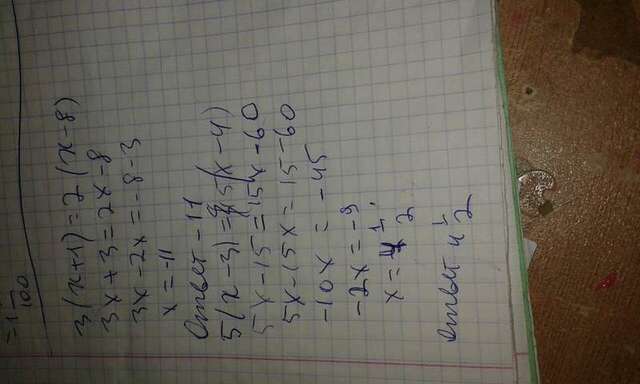 = 1/100
3(x+1)=2(x-8)
3x+3=2x-8
3x-2x=-8-3
x=-11
Ответ -11
5(x-3)=15(x-4)
5x-15=15x-60
5x-15x=15-60
-10x=-45
-2x=-9
x=4 1/2
Ответ 4 1/2